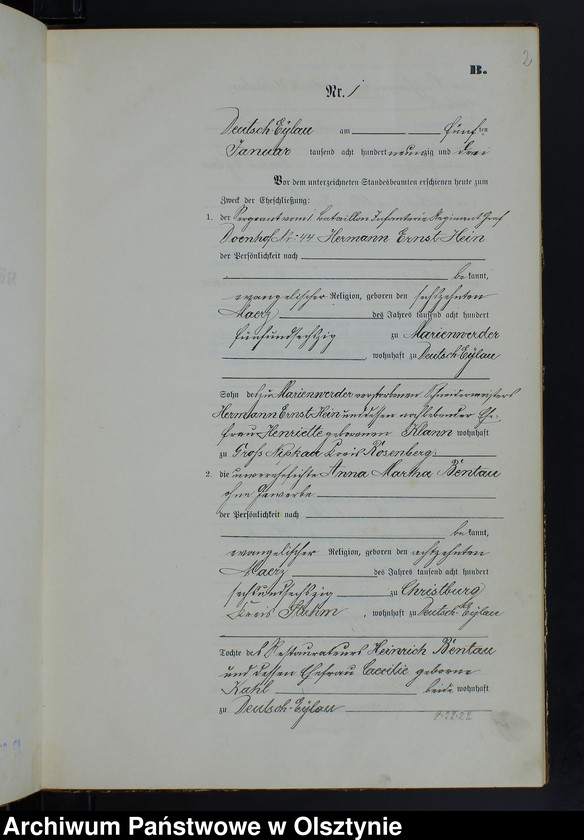 2
B.
Nr. 1
Deutsch-Eylau am fünften
Januar tausend acht hundert neunzig und drei
Vor dem unterzeichneten Standesbeamten erschienen heute zum
Zweck der Eheschließung:
1. der Sergeant vom 1. Bataillon Infanterie Regiment Graf
Doenhof Nr: 44 Hermann Ernst Hein
der Persönlichkeit nach
bekannt,
evangelischer Religion, geboren den sechszehnten
Maerz des Jahres tausend acht hundert
fünfundsechszig zu Marienwerder
wohnhaft zu Deutsch-Eylau
Sohn des zu Marienwerder verstorbenen Schneidermeisters
Hermann Ernst Hein und dessen nachlebender Ehe-
frau Henriette geborenen Klann wohnhaft
zu Groß Kreis Rosenberg.
2. die unverehelichte Anna Martha Bentau
ohne Gewerbe
der Persönlichkeit nach
bekannt,
evangelischer Religion, geboren den achtzehnten
Maerz des Jahres tausend acht hundert
sechsundsechszig zu Christburg
Kreis Stuhm, wohnhaft zu Deutsch-Eylau
Tochter des Restaurateurs Heinrich Bentau
und dessen Ehefrau Caecilie geborne
Kahl beide wohnhaft
zu Deutsch-Eylau
Archiwum Państwowe w Olsztynie